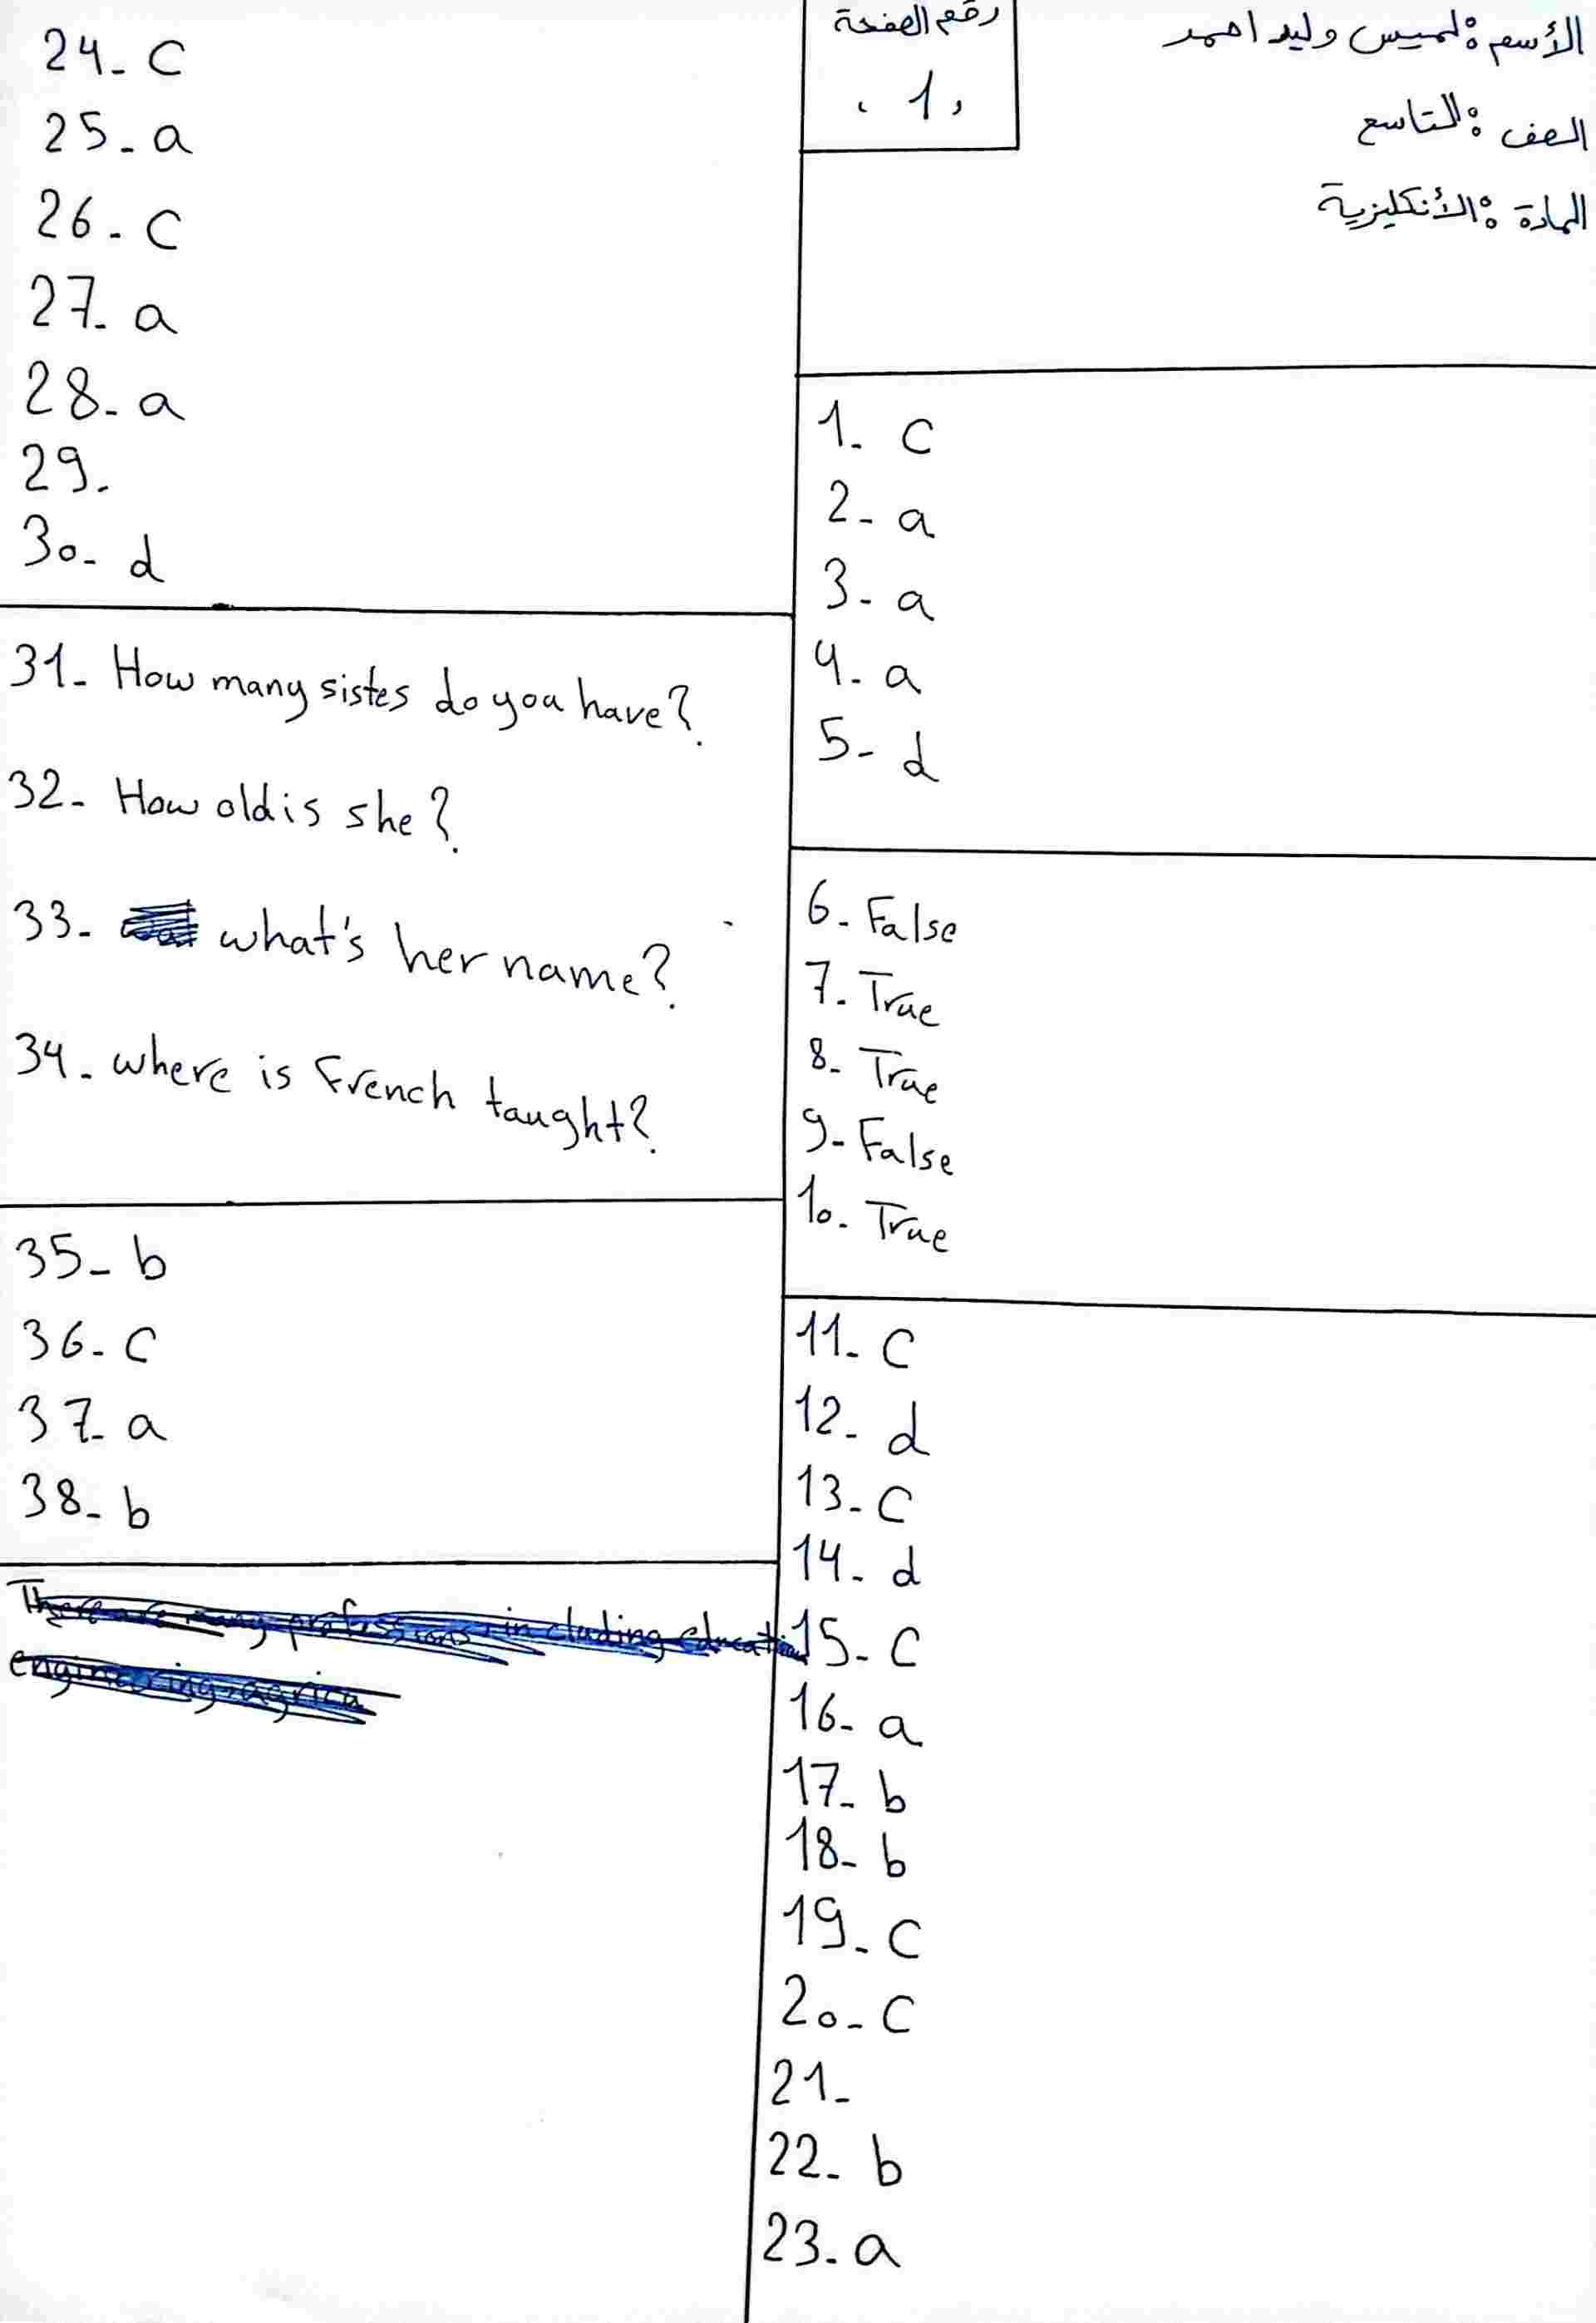 الأسم: لميس وليد احمد
الصف: التاسع
المادة: الأنكليزية
رقم الصفحة
1
1- c
2- a
3- a
4- a
5- d
6- False
7- True
8- True
9- False
10- True
11- c
12- d
13- c
14- d
15- c
16- a
17- b
18- b
19- c
20- c
21-
22- b
23- a
24- c
25- a
26- c
27- a
28- a
29-
30- d
31- How many sistes do you have?
32- How old is she?
33- what's her name?
34- where is French taught?
35- b
36- c
37- a
38- b
There are many professions including education
engineering, agricu